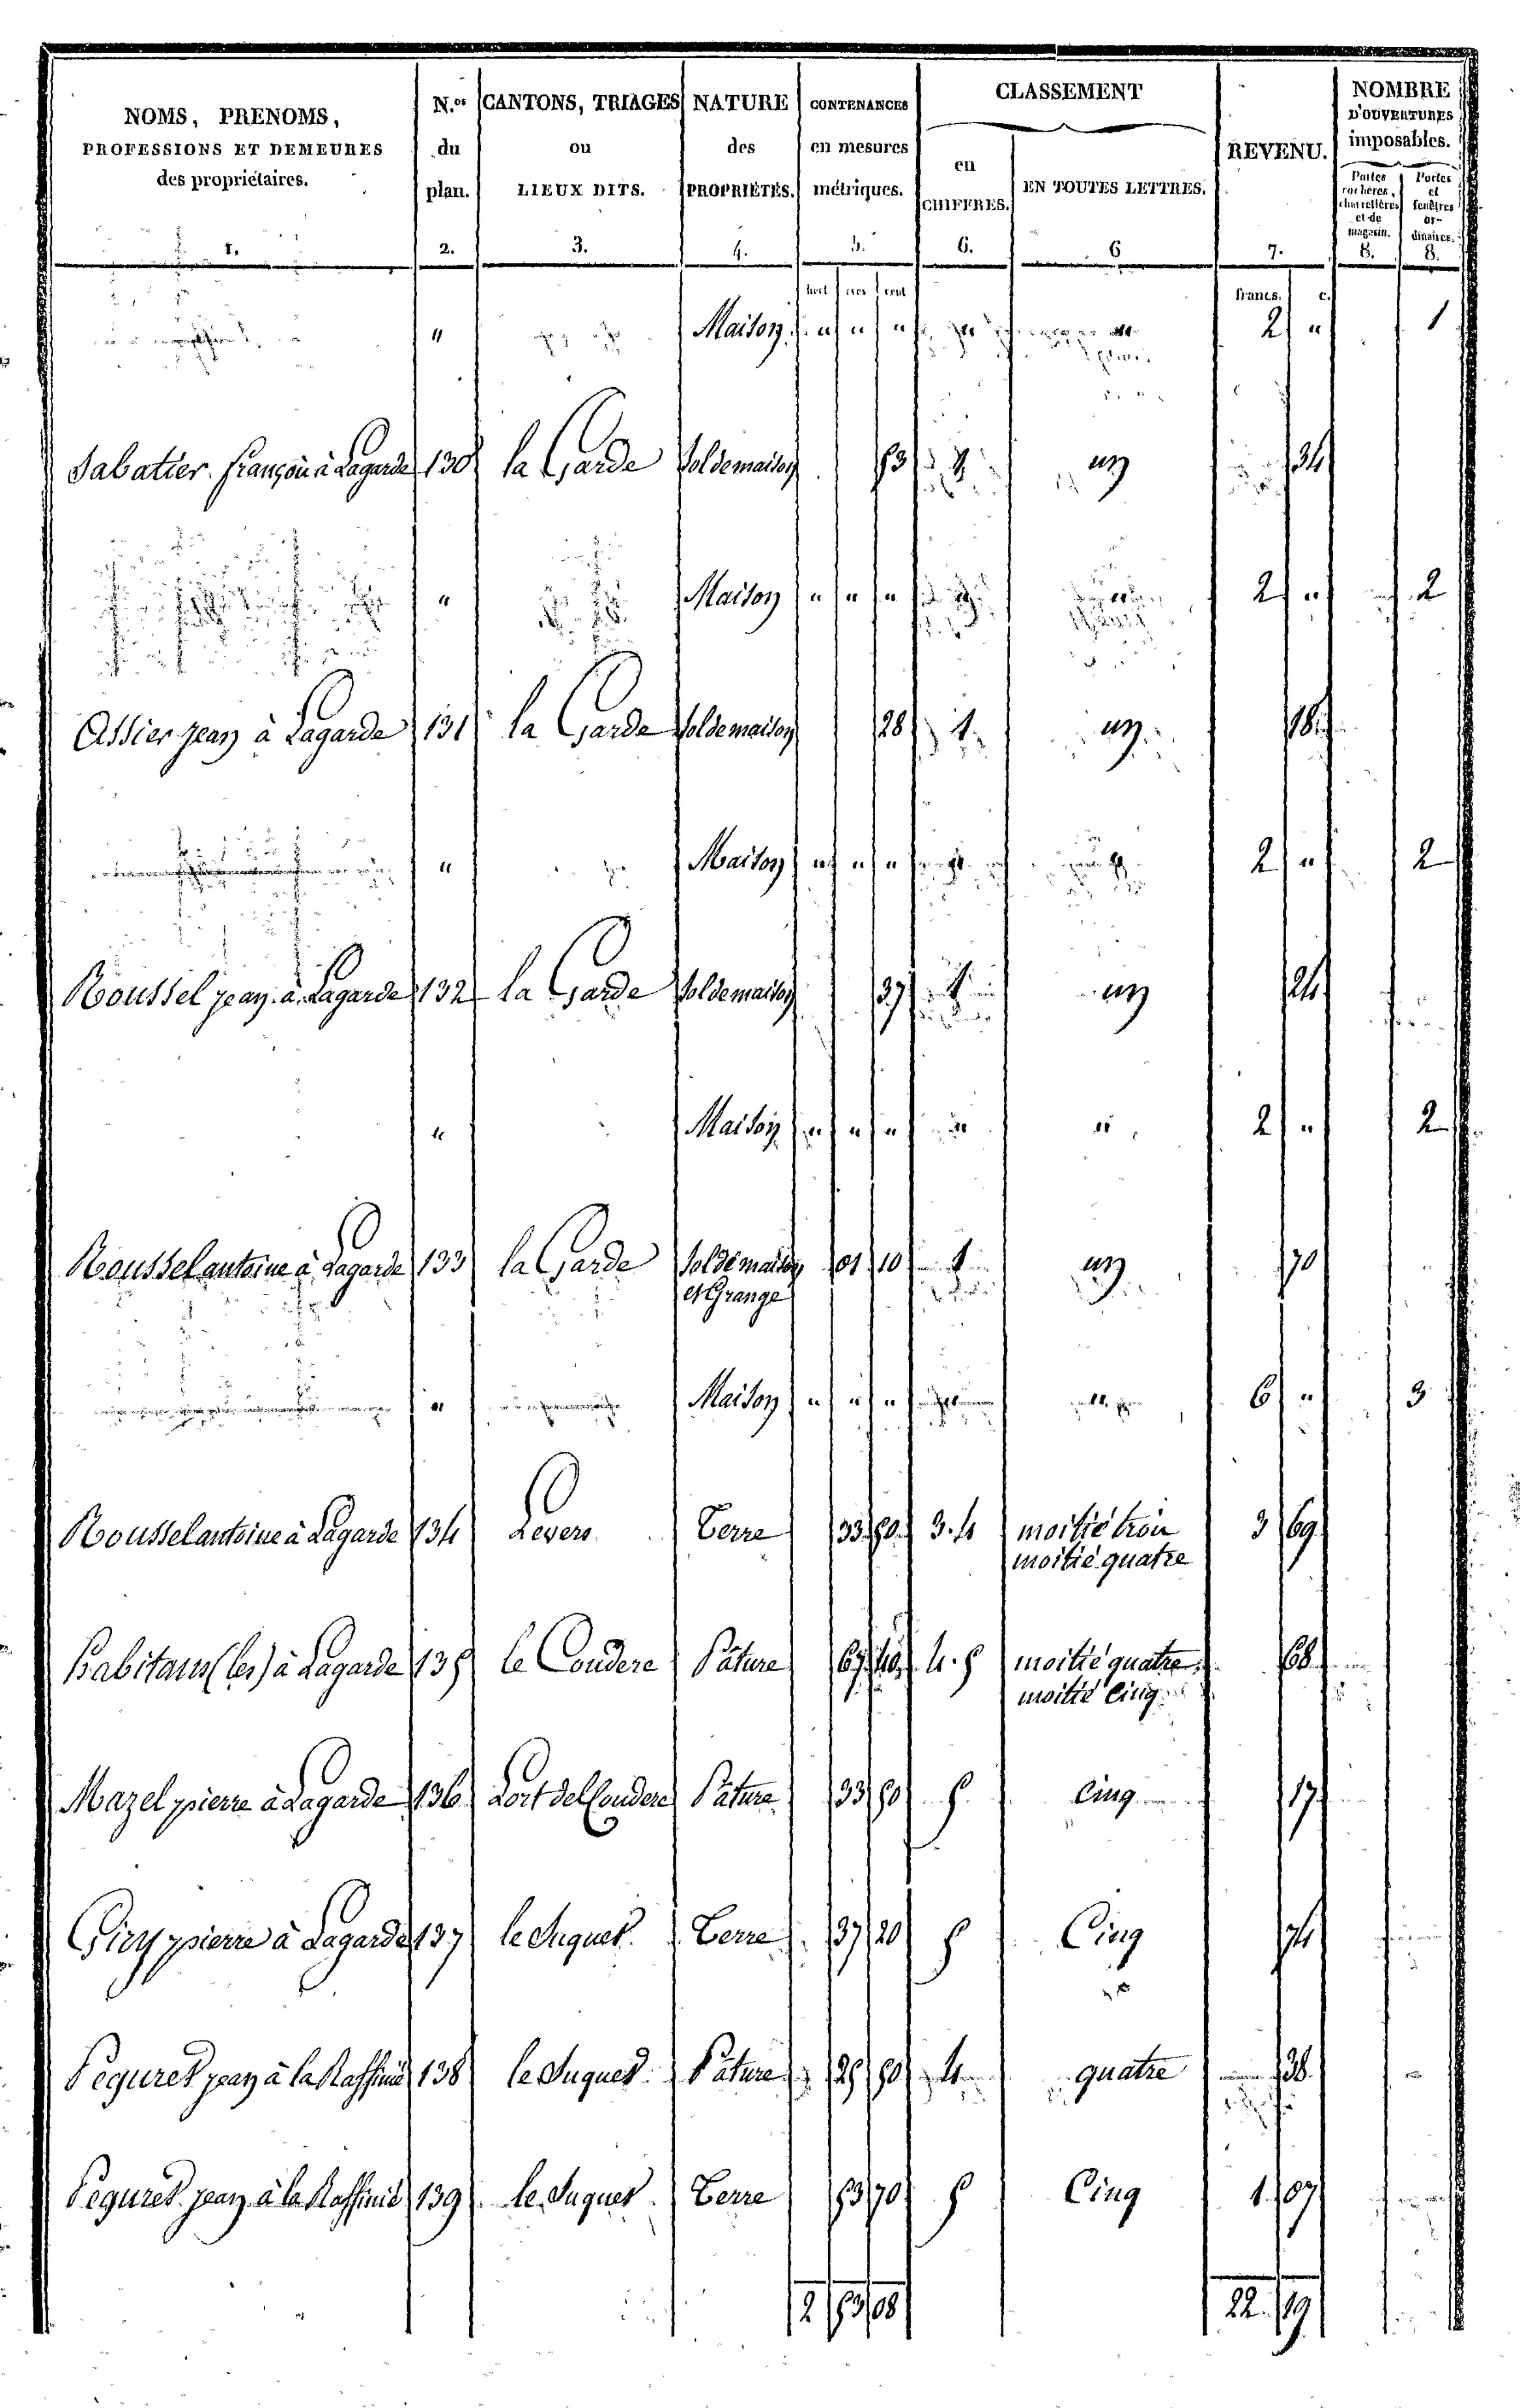 NOMS, PRENOMS, PROFESSIONS ET DEMEURES des propriétaires. N.os du plan. CANTONS, TRIAGES ou LIEUX DITS. NATURE des PROPRIÉTÉS. CONTENANCES en mesures métriques. CLASSEMENT en CHIFFRES. EN TOUTES LETTRES. REVENU. NOMBRE D'OUVERTURES imposables. Portes cochères, charretières et de magasin. Portes et fenêtres ordinaires.
1. 2. 3. 4. 5. 6. 6 7. 8. 8.
hect ares cent francs. c.
" Maison " " " 2 " 1
Sabatier françois à Lagarde 130 la Garde sol de maison 53 1 un 34
" Maison " " " 2 " 2
Assier jean à Lagarde 131 la Garde sol de maison 28 1. un 18
" Maison " " " 2 " 2
Roussel jean à Lagarde 132 la Garde sol de maison 37 1 un 24
" Maison " " " " " 2 " 2
Roussel antoine à Lagarde 133 la Garde sol de maison 01 10 1 un 70
et Grange
" Maison " " " 6 " 3
Roussel antoine à Lagarde 134 Levers Terre 33 50 3.4 moitié trois 3 69
moitié quatre
habitans (les) à Lagarde 135 le Couderc Pâture 67 40 4.5 moitié quatre 68
moitié Cinq
Mazel pierre à Lagarde 136 Lort del Couderc Pâture 33 50 5. Cinq 17
Giry pierre à Lagarde 137 le Suquet Terre 37 20 5 Cinq 74
Peguret jean à la Raffinie 138 le Suquet Pâture 25 50 4 quatre 38
Peguret jean à la Raffinie 139 le Suquet Terre 53 70 5 Cinq 1. 07
2 53 08 22. 19